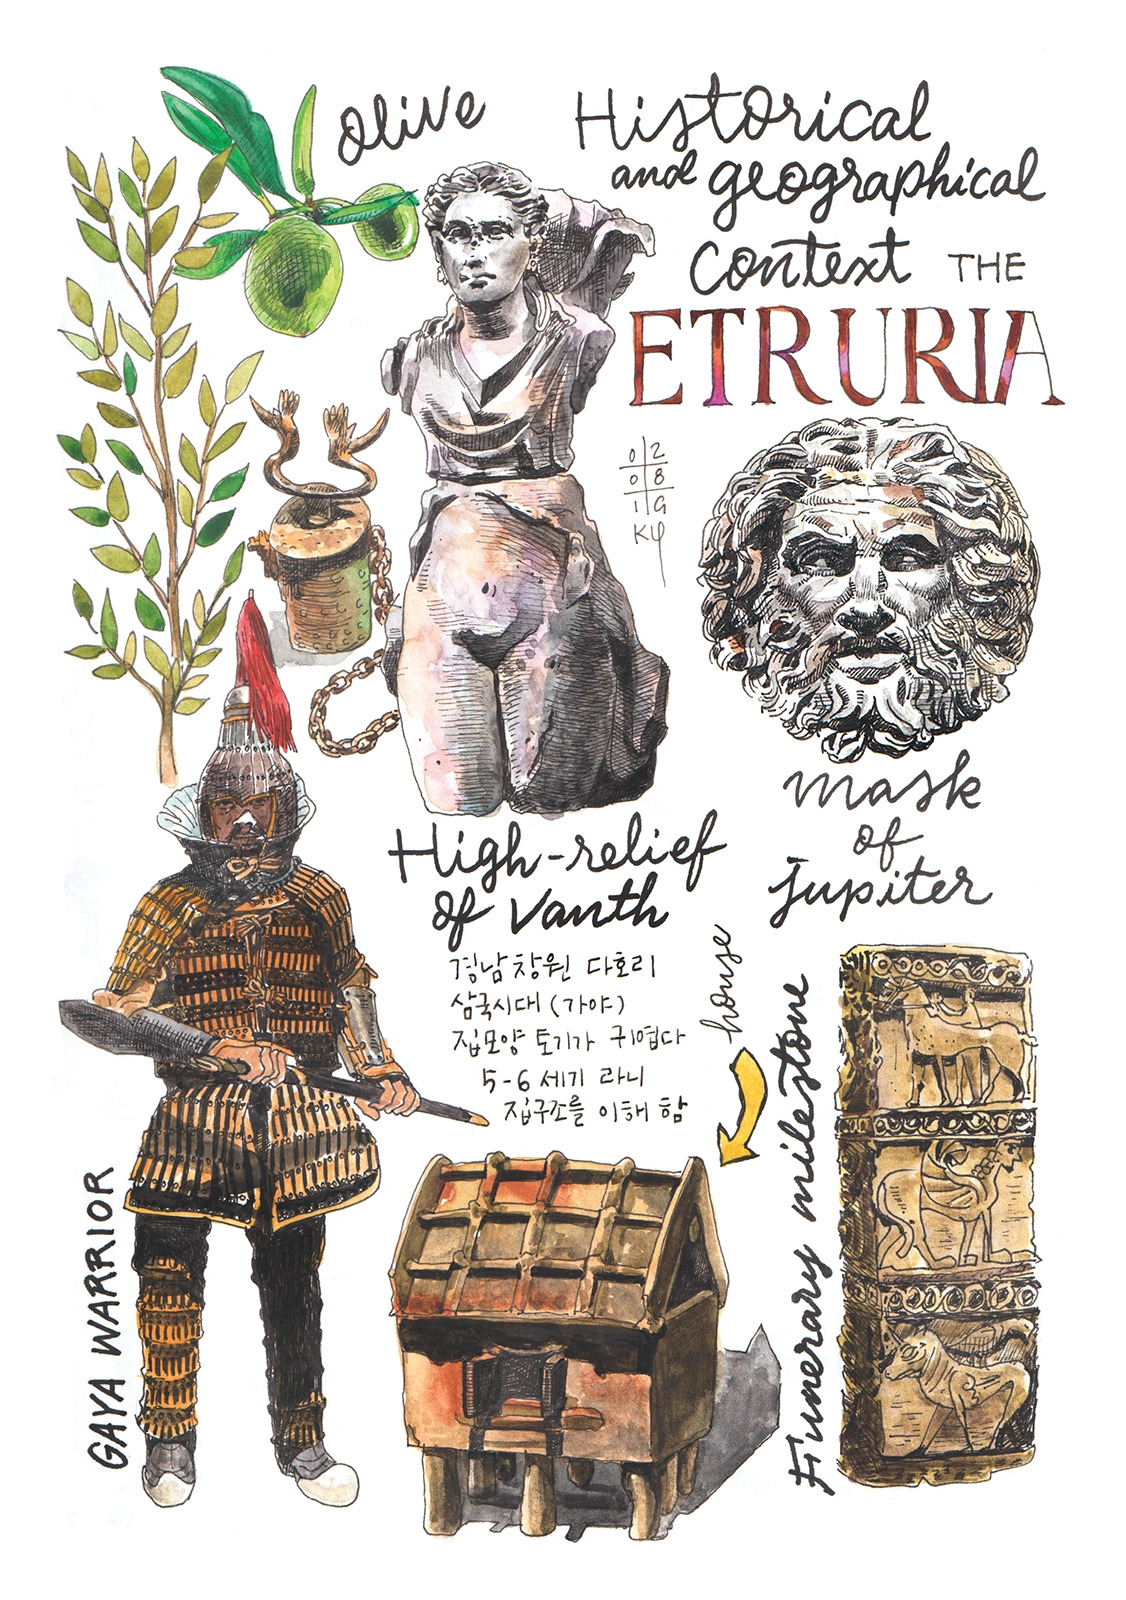 Olive
Historical
and geographical
Context THE
ETRURIA
02
08
19
KY
mask
of
jupiter
High-relief
of Vanth
경남창원 다호리
삼국시대 (가야)
집모양 토기가 귀엽다
5-6 세기 라니
집구조를 이해 함
house
Funerary milestone
GAYA WARRIOR